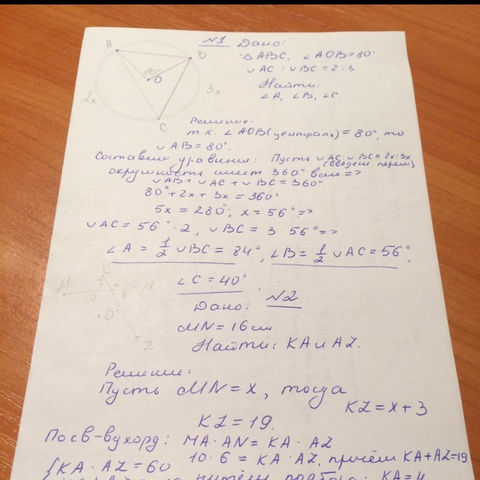 №1 Дано:
△ABC, ∠AOB=80°
∪AC:∪BC=2:3
Найти:
∠A, ∠B, ∠C.
A
B
80°
O
2x
3x
C
Решение:
т.к. ∠AOB(централь)=80°, то
∪AB=80°.
Составим уравнение: Пусть ∪AC:∪BC=2x:3x
(введём перем)
окружность имеет 360° всего =>
∪AB+∪AC+∪BC=360°
80°+2x+3x=360°
5x=280°; x=56° =>
∪AC=56°·2, ∪BC=3·56° =>
∠A=1/2∪BC=84°, ∠B=1/2∪AC=56°.
∠C=40°
K
M
N
O
Z
Дано: №2
MN=16см
Найти: KA и AZ.
Решение:
Пусть MN=x, тогда
KZ=x+3
KZ=19.
По св-ву хорд: MA·AN=KA·AZ
10·6=KA·AZ, причём KA+AZ=19
{KA·AZ=60
путём KA=4